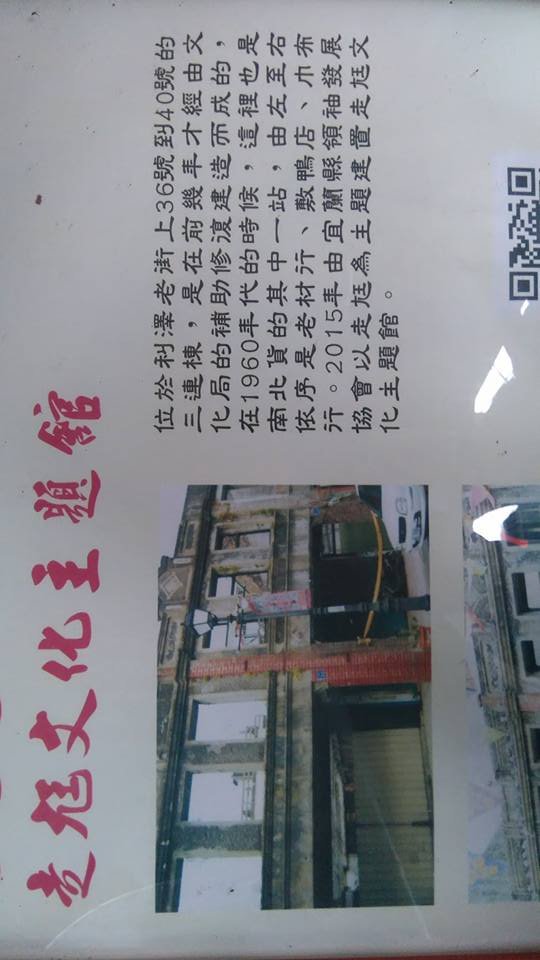 走尪文化主題館
位於利澤老街上36號到40號的
三連棟，是在前幾年才經由文
化局的補助修復建造而成的，
在1960年代的時候，這裡也是
南北貨的其中一站，由左至右
依序是老材行、敷鴨店、巾布
行。2015年由宜蘭縣領袖發展
協會以走尪為主題建置走尪文
化主題館。